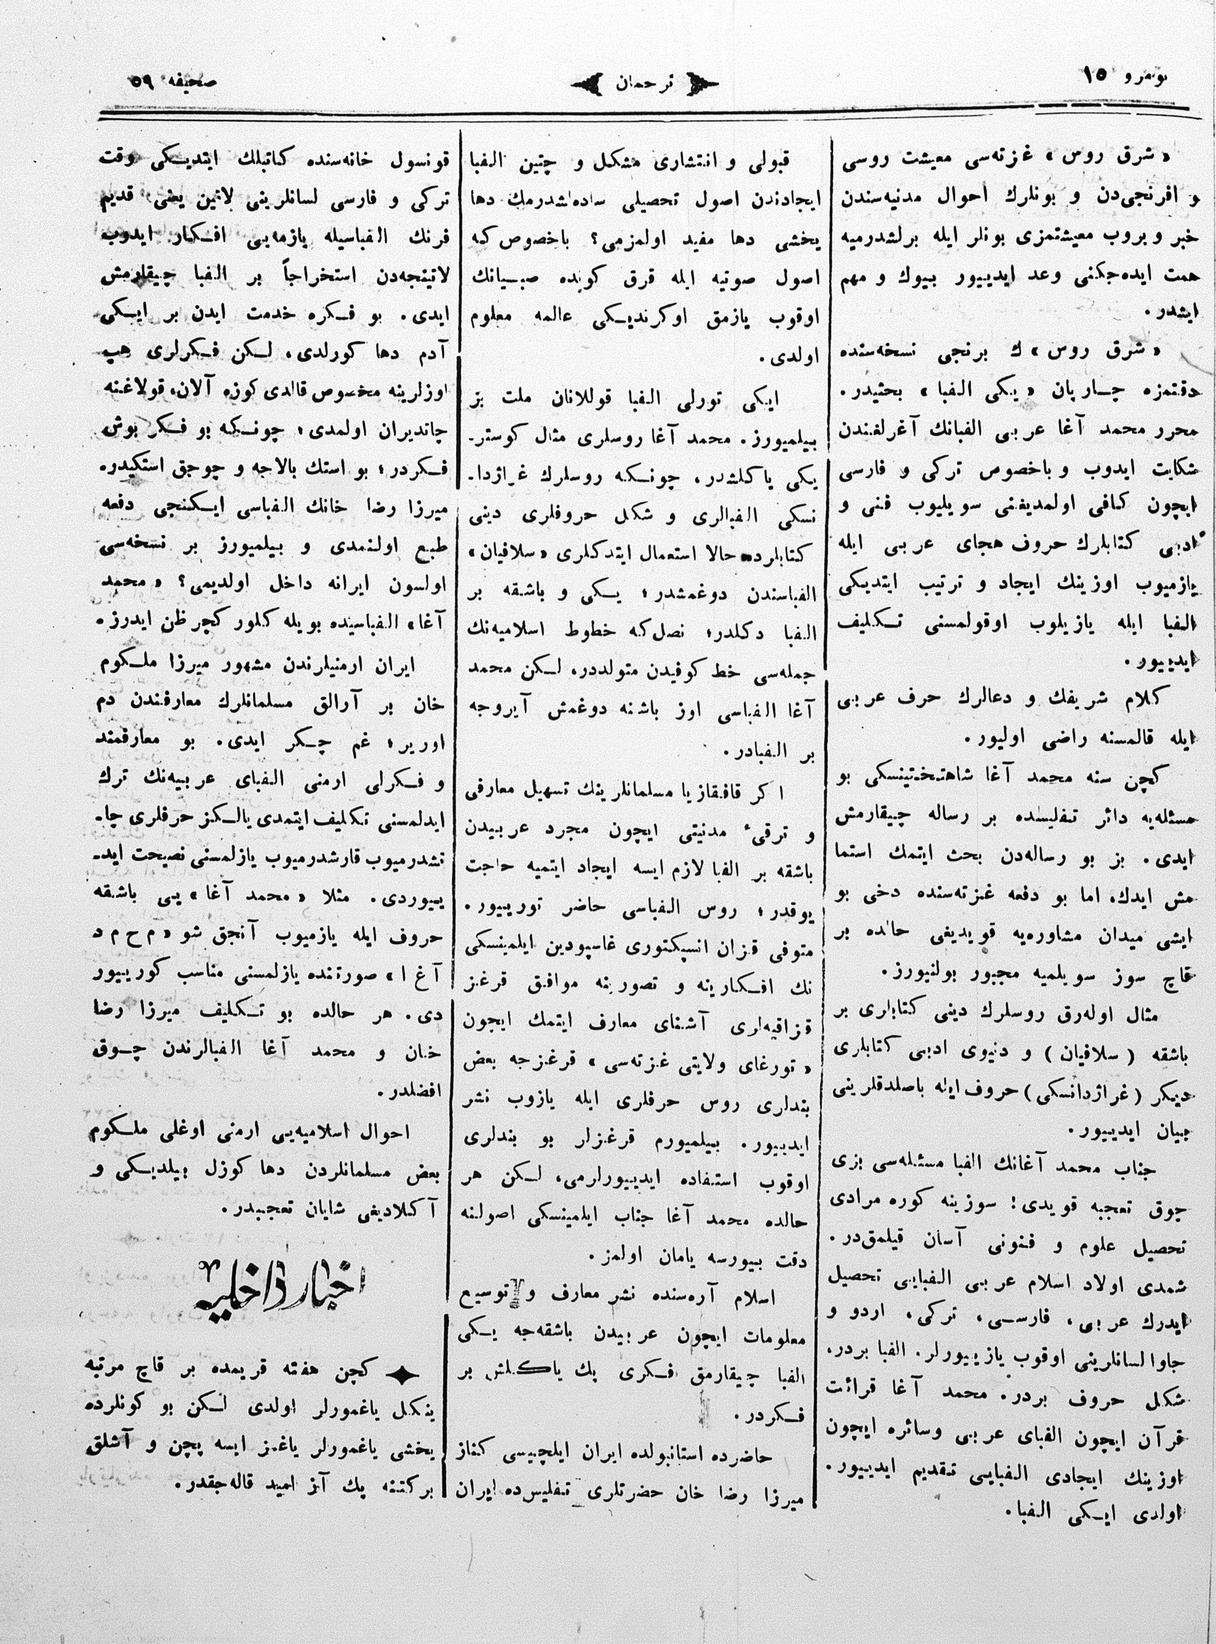 نومرو ١٥
ترجمان
صحیفه ٥٩
« شرق روس » غزته‌سی معیشت روسی
و افرنجی‌دن و بونلرك احوال مدنیه‌سندن
خبر ویروب معیشتمزی بونلر ایله برلشدرمیه
همت ایده‌جكنی وعد ایدییور بیوك و مهم
ایشدر.
« شرق روس » ك برنجی نسخه‌سنده
دقتمزه چارپان « یكی الفبا » بحثیدر.
محرر محمد آغا عربی الفبانك آغرلغندن
شكایت ایدوب و باخصوص تركی و فارسی
ایچون كافی اولمدیغنی سویلیوب فنی و
ادبی كتابلرك حروف هجای عربی ایله
یازمیوب اوزینك ایجاد و ترتیب ایتدیكی
الفبا ایله یازیلوب اوقولمسنی تكلیف
ایدییور.
كلام شریفك و دعالرك حرف عربی
ایله قالمسنه راضی اولیور.
كچن سنه محمد آغا شاهتختینسكی بو
مسئله‌یه دائر تفلیسده بر رساله چیقارمش
ایدی. بز بو رساله‌دن بحث ایتمك استما
مش ایدك، اما بو دفعه غزته‌سنده دخی بو
ایشی میدان مشاوره‌یه قویدیغی حالده بر
قاچ سوز سویلمیه مجبور بولنیورز.
مثال اوله‌رق روسلرك دینی كتابلری بر
باشقه ( سلافیان ) و دنیوی ادبی كتابلری
دیكر ( غراژدانسكی ) حروف ایله باصلدقلرینی
بیان ایدییور.
جناب محمد آغانك الفبا مسئله‌سی بزی
چوق تعجبه قویدی! سوزینه كوره مرادی
تحصیل علوم و فنونی آسان قیلمق‌در.
شمدی اولاد اسلام عربی الفبایی تحصیل
ایدرك عربی، فارسی، تركی، اردو و
جاوا لسانلرینی اوقوب یازییورلر. الفبا بردر،
شكل حروف بردر. محمد آغا قرائت
قرآن ایچون الفبای عربی وسائره ایچون
اوزینك ایجادی الفبایی تقدیم ایدییور.
اولدی ایكی الفبا.
قبولی و انتشاری مشكل و چتین الفبا
ایجادندن اصول تحصیلی ساده‌لشدرمك دها
یخشی دها مفید اولمزمی؟ باخصوص كه
اصول صوتیه ایله قرق كونده صبیانك
اوقوب یازمق اوكرندیكی عالمه معلوم
اولدی.
ایكی تورلی الفبا قوللانان ملت بز
بیلمیورز. محمد آغا روسلری مثال كوستر-
یكی یاكلشدر، چونكه روسلرك غراژدا-
نسكی الفبالری و شكل حروفلری دینی
كتابلرده حالا استعمال ایتدكلری « سلافیان »
الفباسندن دوغمشدر؛ یكی و باشقه بر
الفبا دكلدر؛ نصل‌كه خطوط اسلامیه‌نك
جمله‌سی خط كوفیدن متولددر، لكن محمد
آغا الفباسی اوز باشنه دوغمش آیروجه
بر الفبادر.
اكر قافقازیا مسلمانلرینك تسهیل معارفی
و ترقئ مدنیتی ایچون مجرد عربیدن
باشقه بر الفبا لازم ایسه ایجاد ایتمیه حاجت
یوقدر؛ روس الفباسی حاضر تورییور.
متوفی قزان انسپكتوری غاسپودین ایلمینسكی
نك افكارینه و تصورینه موافق قرغز
قزاقیه‌لری آشنای معارف ایتمك ایچون
« تورغای ولایتی غزته‌سی » قرغزجه بعض
بندلری روس حرفلری ایله یازوب نشر
ایدییور. بیلمیورم قرغزلر بو بندلری
اوقوب استفاده ایدییورلرمی، لكن هر
حالده محمد آغا جناب ایلمینسكی اصولنه
دقت بیورسه یامان اولمز.
اسلام آره‌سنده نشر معارف و توسیع
معلومات ایچون عربیدن باشقه‌جه یكی
الفبا چیقارمق فكری پك یاكلش بر
فكردر.
حاضرده استانبولده ایران ایلچیسی كناز
میرزا رضا خان حضرتلری تفلیس‌ده ایران
قونسول خانه‌سنده كاتبلك ایتدیكی وقت
تركی و فارسی لسانلرینی لاتین یعنی قدیم
فرنك الفباسیله یازمه‌یی افكار ایدوب
لاتینجه‌دن استخراجاً بر الفبا چیقارمش
ایدی. بو فكره خدمت ایدن بر ایكی
آدم دها كورلدی، لكن فكرلری هپ
اوزلرینه مخصوص قالدی كوزه آلان، قولاغنه
چاتدیران اولمدی؛ چونكه بو فكر بوش
فكردر؛ بو استك بالاجه و چوجق استكیدر.
میرزا رضا خانك الفباسی ایكنجی دفعه
طبع اولنمدی و بیلمیورز بر نسخه‌سی
اولسون ایرانه داخل اولدیمی؟ « محمد
آغا » الفباسیده بویله كلور كچر ظن ایدرز.
ایران ارمنیلرندن مشهور میرزا ملكوم
خان بر آرالق مسلمانلرك معارفندن دم
اوریر؛ غم چكر ایدی. بو معارفمند
و فكرلی ارمنی الفبای عربیه‌نك ترك
ایدلمسنی تكلیف ایتمدی یالكز حرفلری چا-
تشدرمیوب قارشدرمیوب یازلمسنی نصیحت اید-
ییوردی. مثلا « محمد آغا » یی باشقه
حروف ایله یازمیوب آنجق شو « م ح م د
آ غ ا » صورتنده یازلمسنی مناسب كورییور
دی. هر حالده بو تكلیف میرزا رضا
خان و محمد آغا الفبالرندن چوق
افضلدر.
احوال اسلامیه‌یی ارمنی اوغلی ملكوم
بعض مسلمانلردن دها كوزل بیلدیكی و
آكلادیغی شایان تعجبدر.
اخبار داخلیه
كچن هفته قریمده بر قاچ مرتبه
ینكل یاغمورلر اولدی لكن بو كونلرده
یخشی یاغمورلر یاغمز ایسه پچن و آشلق
بركتنه پك آز امید قاله‌جقدر.